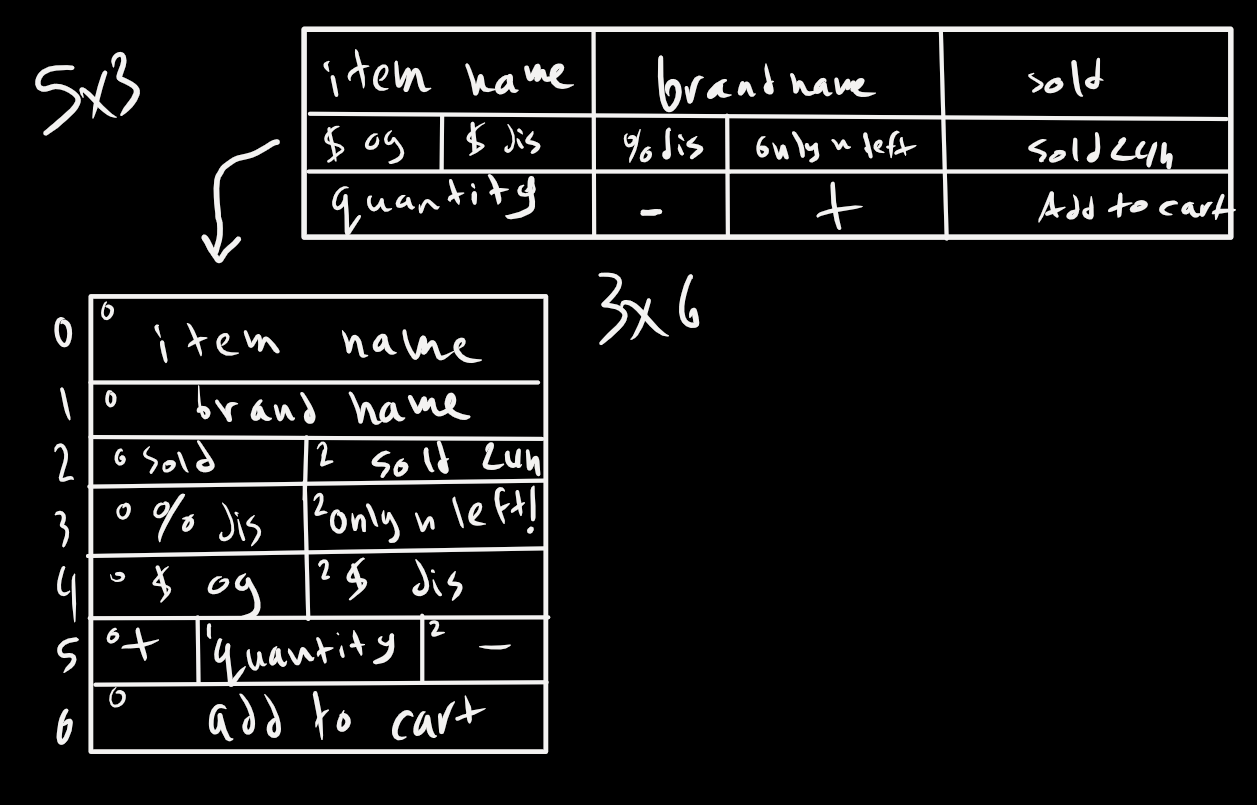 5x3
item name brand name sold
$ og $ dis % dis only n left sold 24h
quantity - + Add to cart
3x6
0 0 item name
1 0 brand name
2 0 sold 2 sold 24h
3 0 % dis 2 only n left!
4 0 $ og 2 $ dis
5 0 + 1 quantity 2 -
6 0 add to cart